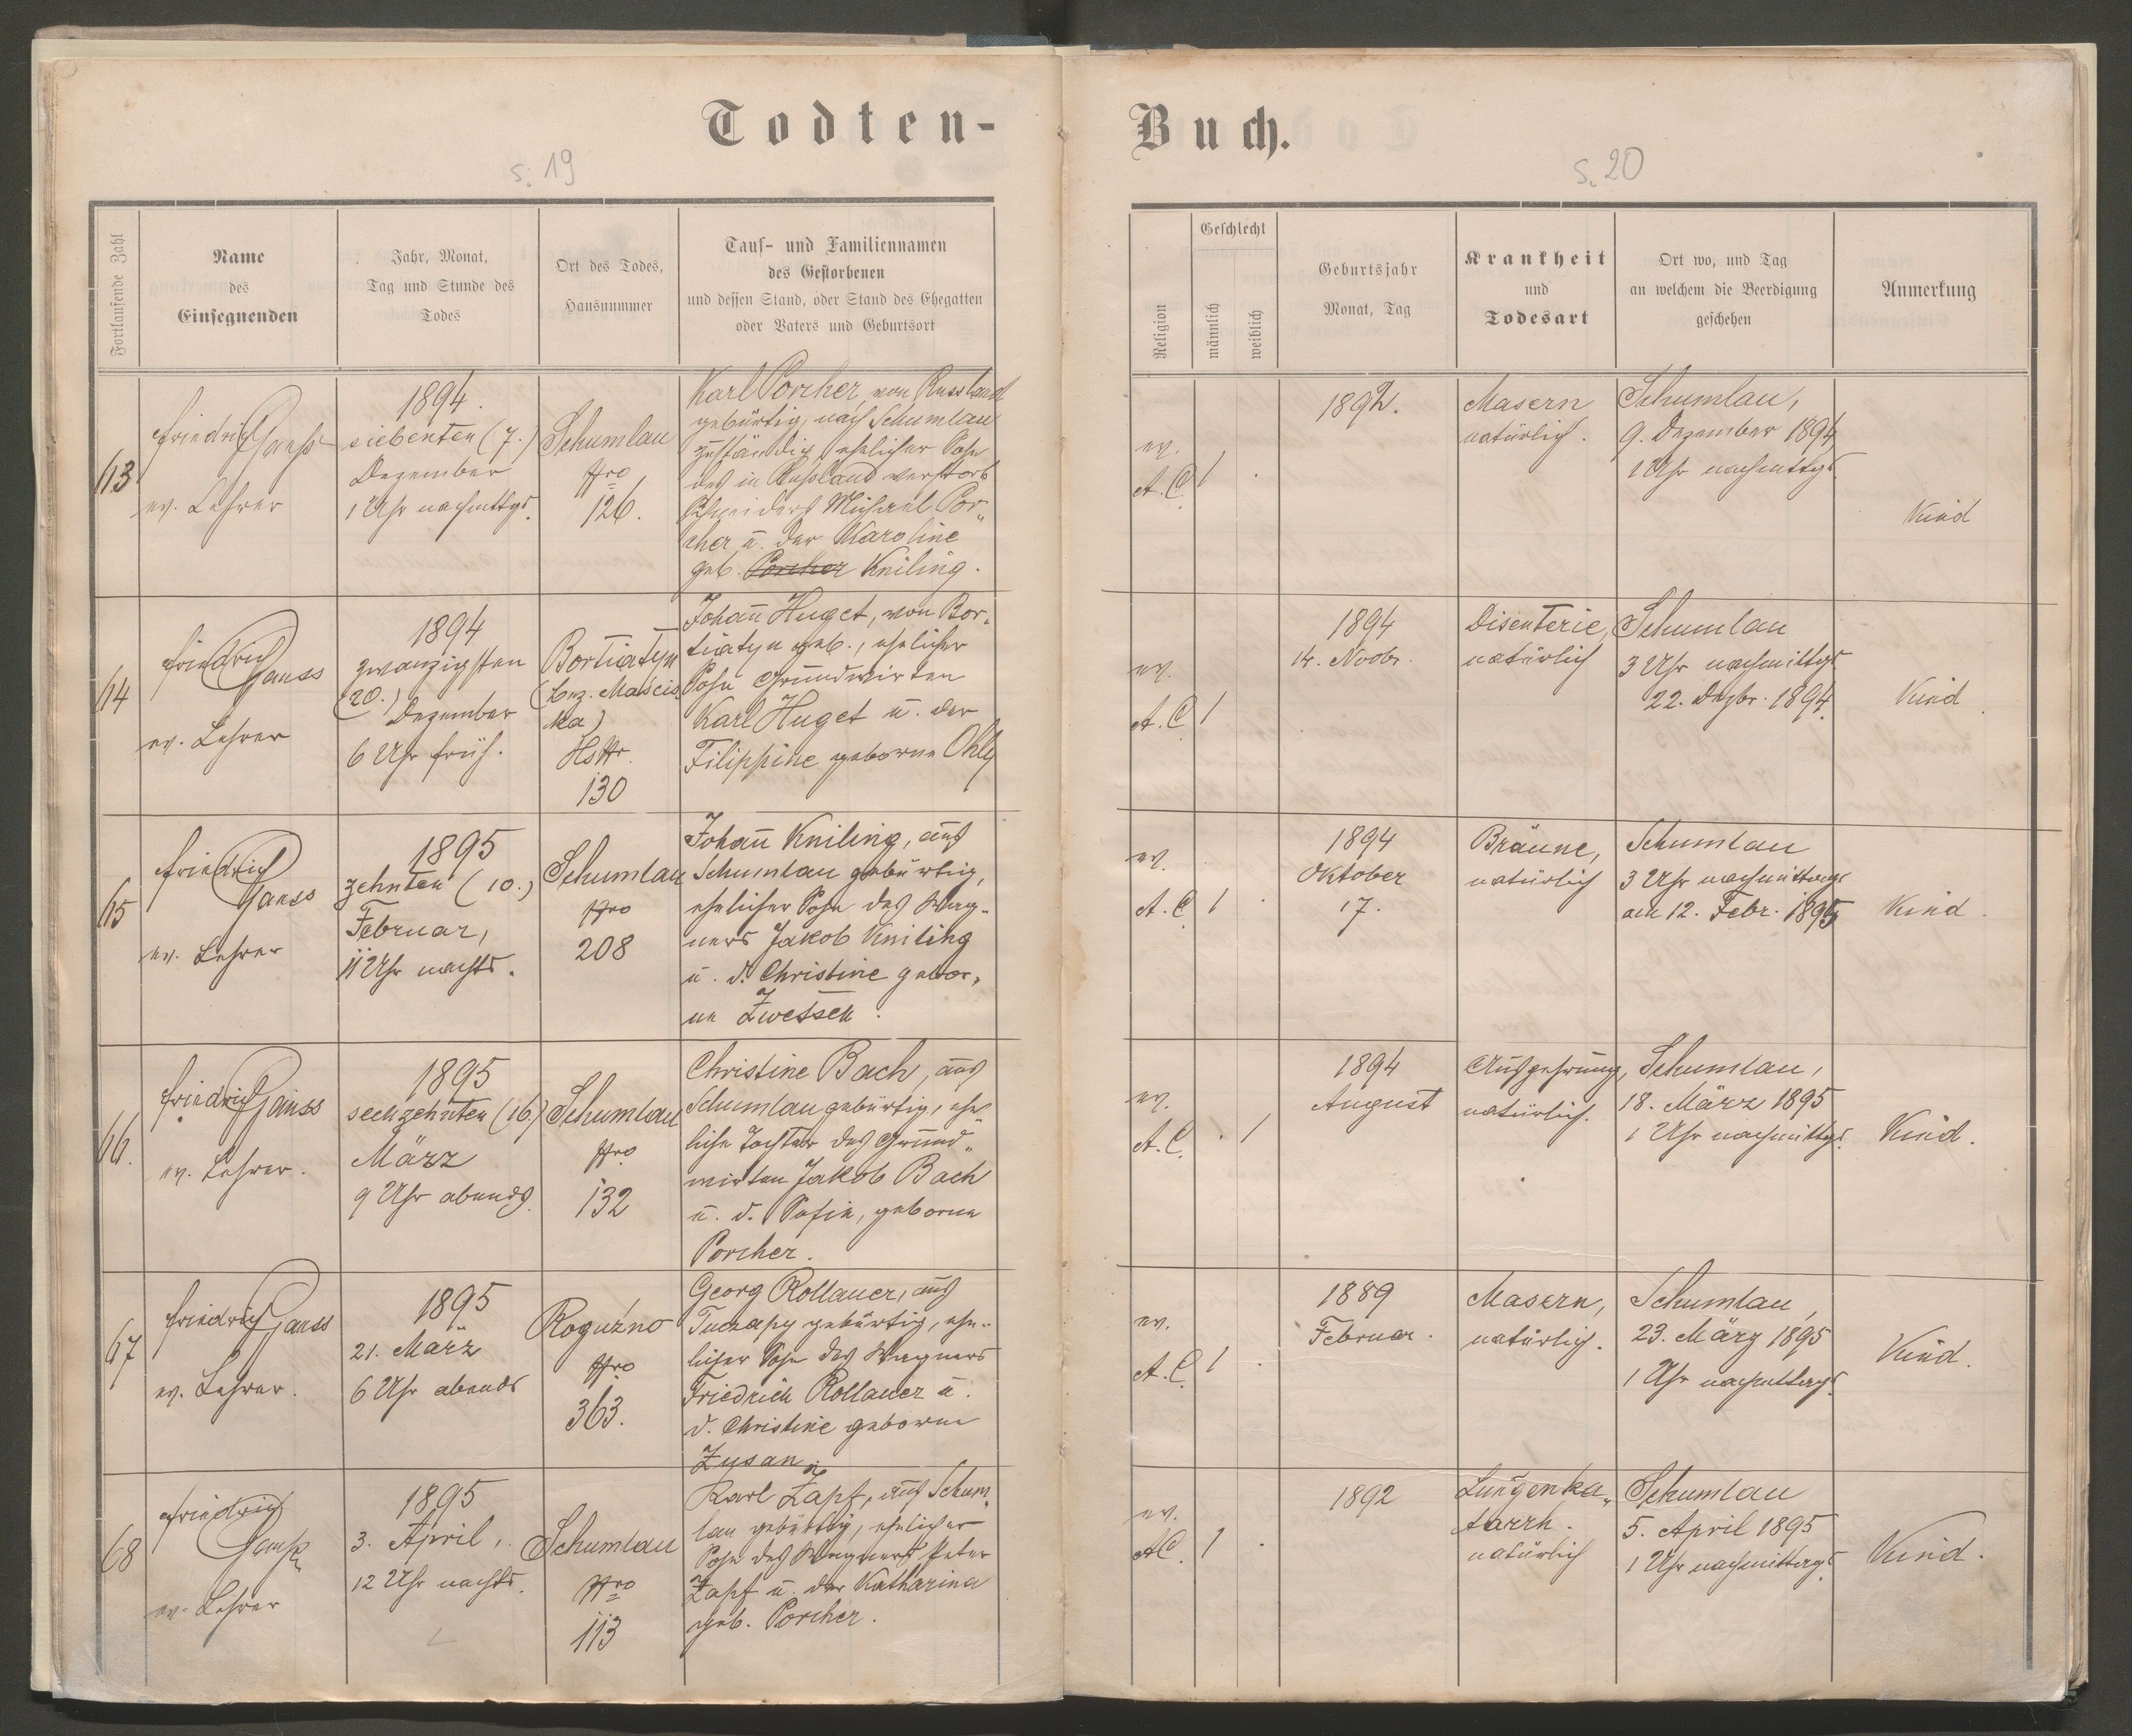 Todten-
s. 19
Fortlaufende Zahl
Name
des
Einsegnenden
Jahr, Monat,
Tag und Stunde des
Todes
Ort des Todes,
Hausnummer
Tauf- und Familiennamen
des Gestorbenen
und dessen Stand, oder Stand des Ehegatten
oder Vaters und Geburtsort
63
Friedrich Ganss
ev. Lehrer
1894.
siebenten (7.)
Dezember
1 Uhr nachmittgs.
Schumlau
Nro
126.
Karl Porcher, von Russland
gebürtig, nach Schumlau
zuständig, ehelicher Sohn
des in Russland verstorb
Schneiders Michael Por„
cher u. der Karoline
geb. Porcher Kniling.
64
Friedrich
Ganss
ev. Lehrer
1894
zwanzigsten
(20.)
Dezember
6 Uhr früh.
Bortiatyn
(bez. Mościs
ka)
HsNr.
130
Johañ Huget, von Bor„
tiatyn geb., ehelicher
Sohn Grundwirten
Karl Huget u. der
Filippine geborne Ohly
65
Friedrich
Ganss
ev. Lehrer
1895
zehnten (10.)
Februar,
11 Uhr nachts.
Schumlau
Nro
208
Johañ Kniling, aus
Schumlau gebürtig,
ehelicher Sohn des Wag„
ners Jakob Kniling
u. d. Christine gebor„
ne Zwetsch.
66.
Friedrich Ganss
ev. Lehrer.
1895
sechzehnten (16.)
März
9 Uhr abends.
Schumlau
Nro
132
Christine Bach, aus
Schumlau gebürtig, ehe„
liche Tochter des Grund„
wirten Jakob Bach
u. d. Sofie, geborne
Porcher.
67
Friedrich Ganss
ev. Lehrer.
1895
21. März
6 Uhr abends
Roguźno
Nro
363.
Georg Rollauer, aus
Tuczapy gebürtig, ehe„
licher Sohn des Wagners
Friedrich Rollauer u.
d. Christine geborne
Zusan
68
Friedrich
Ganss
ev. Lehrer
1895
3. April,
12 Uhr nachts.
Schumlau
Nro
113
Karl Zapf, aus Schum„
lau gebürtig, ehelicher
Sohn des Wagners Peter
Zapf u. der Katharina
geb. Porcher.
Buch.
s. 20
Religion
Geschlecht
männlich
weiblich
Geburtsjahr
Monat, Tag
Krankheit
und
Todesart
Ort wo, und Tag
an welchem die Beerdigung
geschehen
Anmerkung
ev.
A.C.
1
1892.
Masern
natürlich.
Schumlau,
9. Dezember 1894
1 Uhr nachmittgs.
Kind
ev.
A.C.
1
1894
14. Novbr.
Disenterie,
natürlich
Schumlau
3 Uhr nachmittgs
22. Dezbr. 1894.
Kind
ev.
A.C.
1
1894
Oktober
17.
Bräune,
natürlich
Schumlau
3 Uhr nachmittags
am 12. Febr. 1895
Kind.
ev.
A.C.
1
1894
August
Auszehrung,
natürlich.
Schumlau,
18. März 1895
1 Uhr nachmittgs.
Kind.
ev.
A.C.
1
1889
Februar.
Masern,
natürlich.
Schumlau,
23. März 1895
1 Uhr nachmittags
Kind.
ev.
A.C.
1
1892
Lungenka„
tarrh.
natürlich
Schumlau
5. April 1895
1 Uhr nachmittags.
Kind.